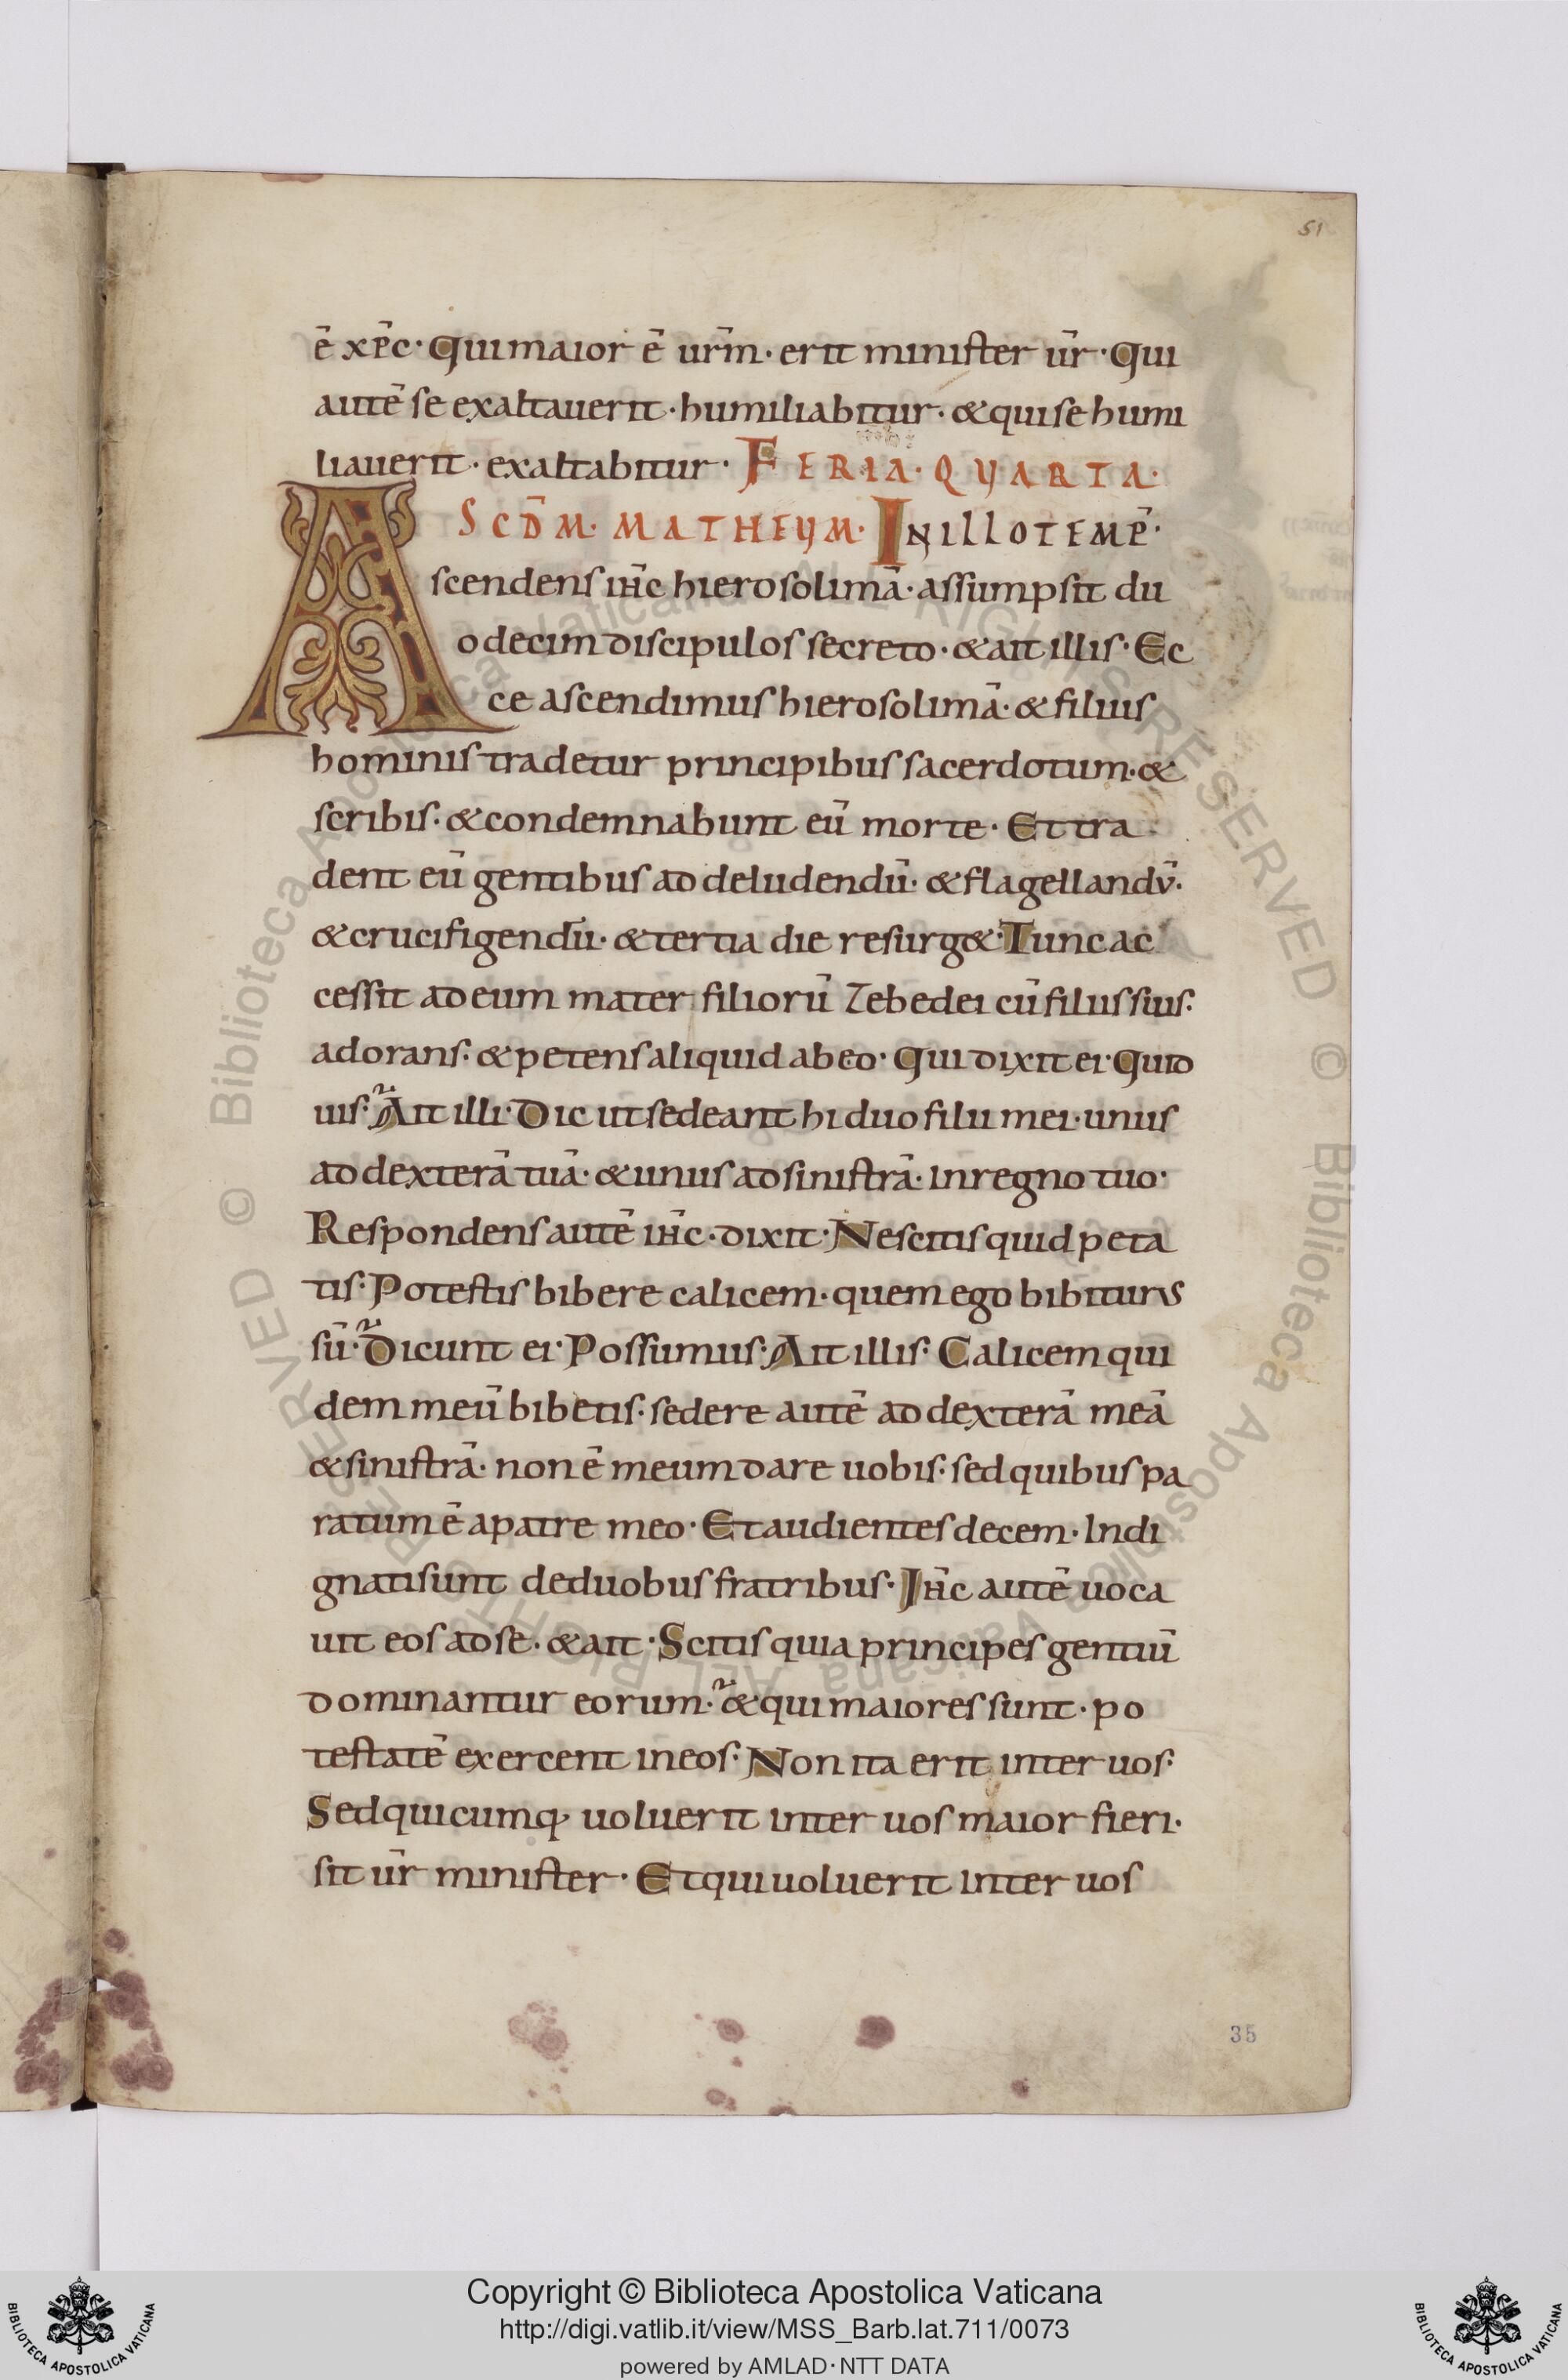 51
ē xp̄c· Qui maior ē urm̄· erit minister ur̄· Qui
autē se exaltauerit· humiliabitur· & qui se humi
liauerit· exaltabitur· FERIA· QVARTA·
SCDM̄· MATHEVM· IN ILLO TEMP̄·
Ascendens ih̄c hierosolimā· assumpsit du
odecim discipulos secreto· & ait illis· Ec
ce ascendimus hierosolimā· & filius
hominis tradetur principibus sacerdotum· &
scribis· & condemnabunt eū morte· Et tra
dent eū gentibus ad deludendū· & flagellandv̄·
& crucifigendū· & tertia die resurg&· Tunc ac
cessit ad eum mater filiorū Zebedei cū filiis suis·
adorans· & petens aliquid ab eo· Qui dixit ei· Quid
uis· Ait illi· Dic ut sedeant hi duo filii mei· unus
ad dexterā tuā· & unus ad sinistrā· in regno tuo·
Respondens autē ih̄c· dixit· Nescitis quid peta
tis· Potestis bibere calicem· quem ego bibiturus
sū· Dicunt ei· Possumus· Ait illis· Calicem qui
dem meū bibetis· sedere autē ad dexterā meā
& sinistrā· non ē meum dare uobis· sed quibus pa
ratum ē a patre meo· Et audientes decem· Indi
gnati sunt de duobus fratribus· Ih̄c autē uoca
uit eos ad se· & ait· Scitis quia principes gentiū
dominantur eorum· & qui maiores sunt· po
testatē exercent in eos· Non ita erit inter uos·
Sed quicumq; uoluerit inter uos maior fieri·
sit ur̄ minister· Et qui uoluerit inter uos
35
Copyright © Biblioteca Apostolica Vaticana
http://digi.vatlib.it/view/MSS_Barb.lat.711/0073
powered by AMLAD·NTT DATA
BIBLIOTECA APOSTOLICA VATICANA
BIBLIOTECA APOSTOLICA VATICANA
© Biblioteca Apostolica Vaticana ALL RIGHTS RESERVED
© Biblioteca Apostolica Vaticana ALL RIGHTS RESERVED